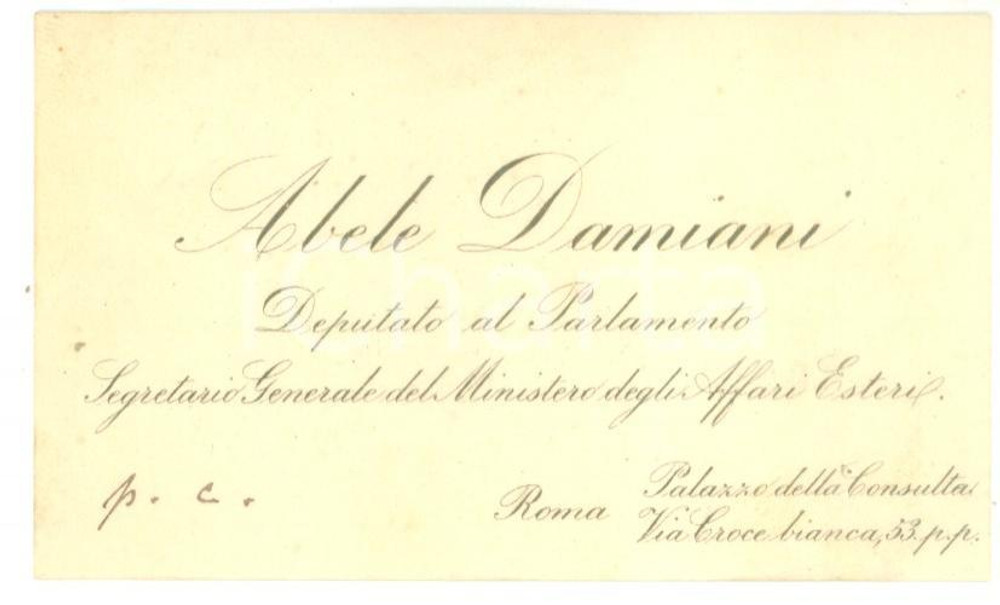 Abele Damiani
Deputato al Parlamento
Segretario Generale del Ministero degli Affari Esteri.
p. c.
Roma
Palazzo della Consulta
Via Croce bianca, 53. p. p.
iCharta